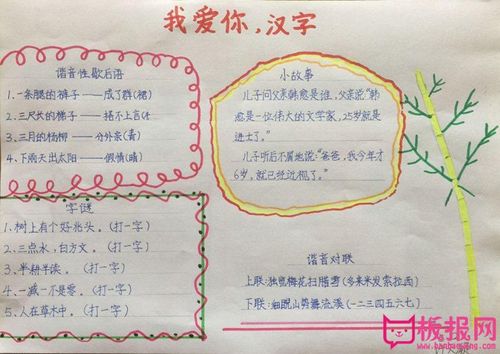 我爱你,汉字
谐音性歇后语
1.一条腿的裤子——成了群(裙)
2.三尺长的梯子——搭不上言(檐)
3.三月的杨柳——分外亲(青)
4.下雨天出太阳——假情(晴)
小故事
儿子问父亲韩愈是谁,父亲说"韩
愈是一位伟大的文学家,25岁就是
进士了。"
儿子听后不屑地说:"爸爸,我今年才
6岁,就已经近视了。"
字谜
1.树上有个好兆头。(打一字)
2.三点水,白方文。(打一字)
3.半耕半读。(打一字)
4.一减一不是零。(打一字)
5.人在草木中。(打一字)
谐音对联
上联:独览梅花扫腊雪(多来米发索拉西)
下联:细睨山势舞流溪(一二三四五六七)
板报网
www.banbaowang.com